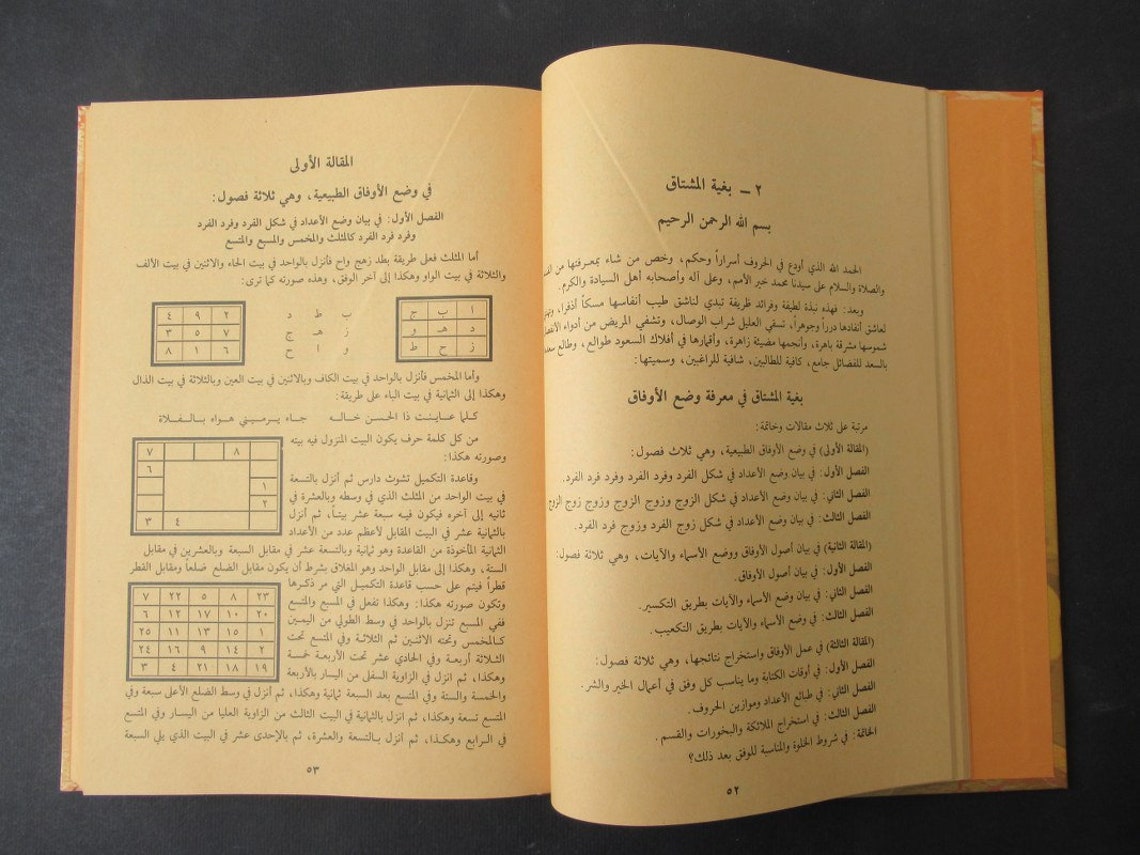 ٢ ــ بغية المشتاق
بسم الله الرحمن الرحيم
الحمد الله الذي أودع في الحروف أسراراً وحكم، وخص من شاء بمعرفتها من
والصلاة والسلام على سيدنا محمد خير الأمم، وعلى آله وأصحابه أهل السيادة والكرم.
وبعد: فهذه نبذة لطيفة وفرائد ظريفة تبدي لناشق طيب أنفاسها مسكاً أذفرا،
لعاشق أنفادها درراً وجوهراً، تسقي العليل شراب الوصال، وتشفي المريض من أدواء
شموسها مشرقة باهرة، وأنجمها مضيئة زاهرة، وأقمارها في أفلاك السعود طوالع، وطالع
بالسعد للفضائل جامع، كافية للطالبين، شافية للراغبين، وسميتها:
بغية المشتاق في معرفة وضع الأوفاق
مرتبة على ثلاث مقالات وخاتمة:
(المقالة الأولى) في وضع الأوفاق الطبيعية، وهي ثلاث فصول:
الفصل الأول: في بيان وضع الأعداد في شكل الفرد وفرد الفرد وفرد فرد الفرد.
الفصل الثاني: في بيان وضع الأعداد في شكل الزوج وزوج الزوج وزوج زوج الزوج
الفصل الثالث: في بيان وضع الأعداد في شكل زوج الفرد وزوج فرد الفرد.
(المقالة الثانية) في بيان أصول الأوفاق ووضع الأسماء والآيات، وهي ثلاثة فصول:
الفصل الأول: في بيان أصول الأوفاق.
الفصل الثاني: في بيان وضع الأسماء والآيات بطريق التكسير.
الفصل الثالث: في وضع الأسماء والآيات بطريق التكعيب.
(المقالة الثالثة) في عمل الأوفاق واستخراج نتائجها، وهي ثلاثة فصول:
الفصل الأول: في أوقات الكتابة وما يناسب كل وفق في أعمال الخير والشر.
الفصل الثاني: في طبائع الأعداد وموازين الحروف.
الفصل الثالث: في استخراج الملائكة والبخورات والقسم.
الخاتمة: في شروط الخلوة والمناسبة للوفق بعد ذلك؟
٥٢
المقالة الأولى
في وضع الأوفاق الطبيعية، وهي ثلاثة فصول:
الفصل الأول: في بيان وضع الأعداد في شكل الفرد وفرد الفرد
وفرد فرد الفرد كالمثلث والمخمس والمسبع والمتسع
أما المثلث فعلى طريقة بطد زهج واح فأنزل بالواحد في بيت الحاء والاثنين في بيت الألف
والثلاثة في بيت الواو وهكذا إلى آخر الوفق، وهذه صورته كما ترى:
ا ب ج
د هـ و
ز ح ط
ب ط د
ز هـ ج
و ا ح
٢ ٩ ٤
٧ ٥ ٣
٦ ١ ٨
وأما المخمس فأنزل بالواحد في بيت الكاف وبالاثنين في بيت العين وبالثلاثة في بيت الذال
وهكذا إلى الثمانية في بيت الباء على طريقة:
كلما عاينت ذا الحسن خاله جاء يرميني هواه بالفلاة
من كل كلمة حرف يكون البيت المنزول فيه بيته
وصورته هكذا:
٨ ٧
٦
١
٢
٤ ٣
وقاعدة التكميل تشوث دارس ثم أنزل بالتسعة
في بيت الواحد من المثلث الذي في وسطه وبالعشرة في
ثانيه إلى آخره فيكون فيه سبعة عشر بيتاً، ثم أنزل
بالثمانية عشر في البيت المقابل لأعظم عدد من الأعداد
الثمانية المأخوذة من القاعدة وهو ثمانية وبالتسعة عشر في مقابل السبعة وبالعشرين في مقابل
الستة، وهكذا إلى مقابل الواحد وهو المغلاق بشرط أن يكون مقابل الضلع ضلعاً ومقابل القطر
قطراً فيتم على حسب قاعدة التكميل التي مر ذكرها
وتكون صورته هكذا: وهكذا تفعل في المسبع والمتسع
ففي المسبع تنزل بالواحد في وسط الطولي من اليمين
كالمخمس وتحته الاثنين ثم الثلاثة وفي المتسع تحت
الثلاثة أربعة وفي الحادي عشر تحت الأربعة خمسة
وهكذا، ثم انزل في الزاوية السفلى من اليسار بالأربعة
٢٣ ٨ ٥ ٢٢ ٧
٢٠ ١٠ ١٧ ١٢ ٦
١ ١٥ ١٣ ١١ ٢٥
٢ ١٤ ٩ ١٦ ٢٤
١٩ ١٨ ٢١ ٤ ٣
والخمسة والستة وفي المتسع بعد السبعة ثمانية وهكذا، ثم أنزل في وسط الضلع الأعلى سبعة وفي
المتسع تسعة وهكذا، ثم انزل بالثمانية في البيت الثالث من الزاوية العليا من اليسار وفي المتسع
في الرابع وهكذا، ثم أنزل بالتسعة والعشرة، ثم بالإحدى عشر في البيت الذي يلي السبعة
٥٣